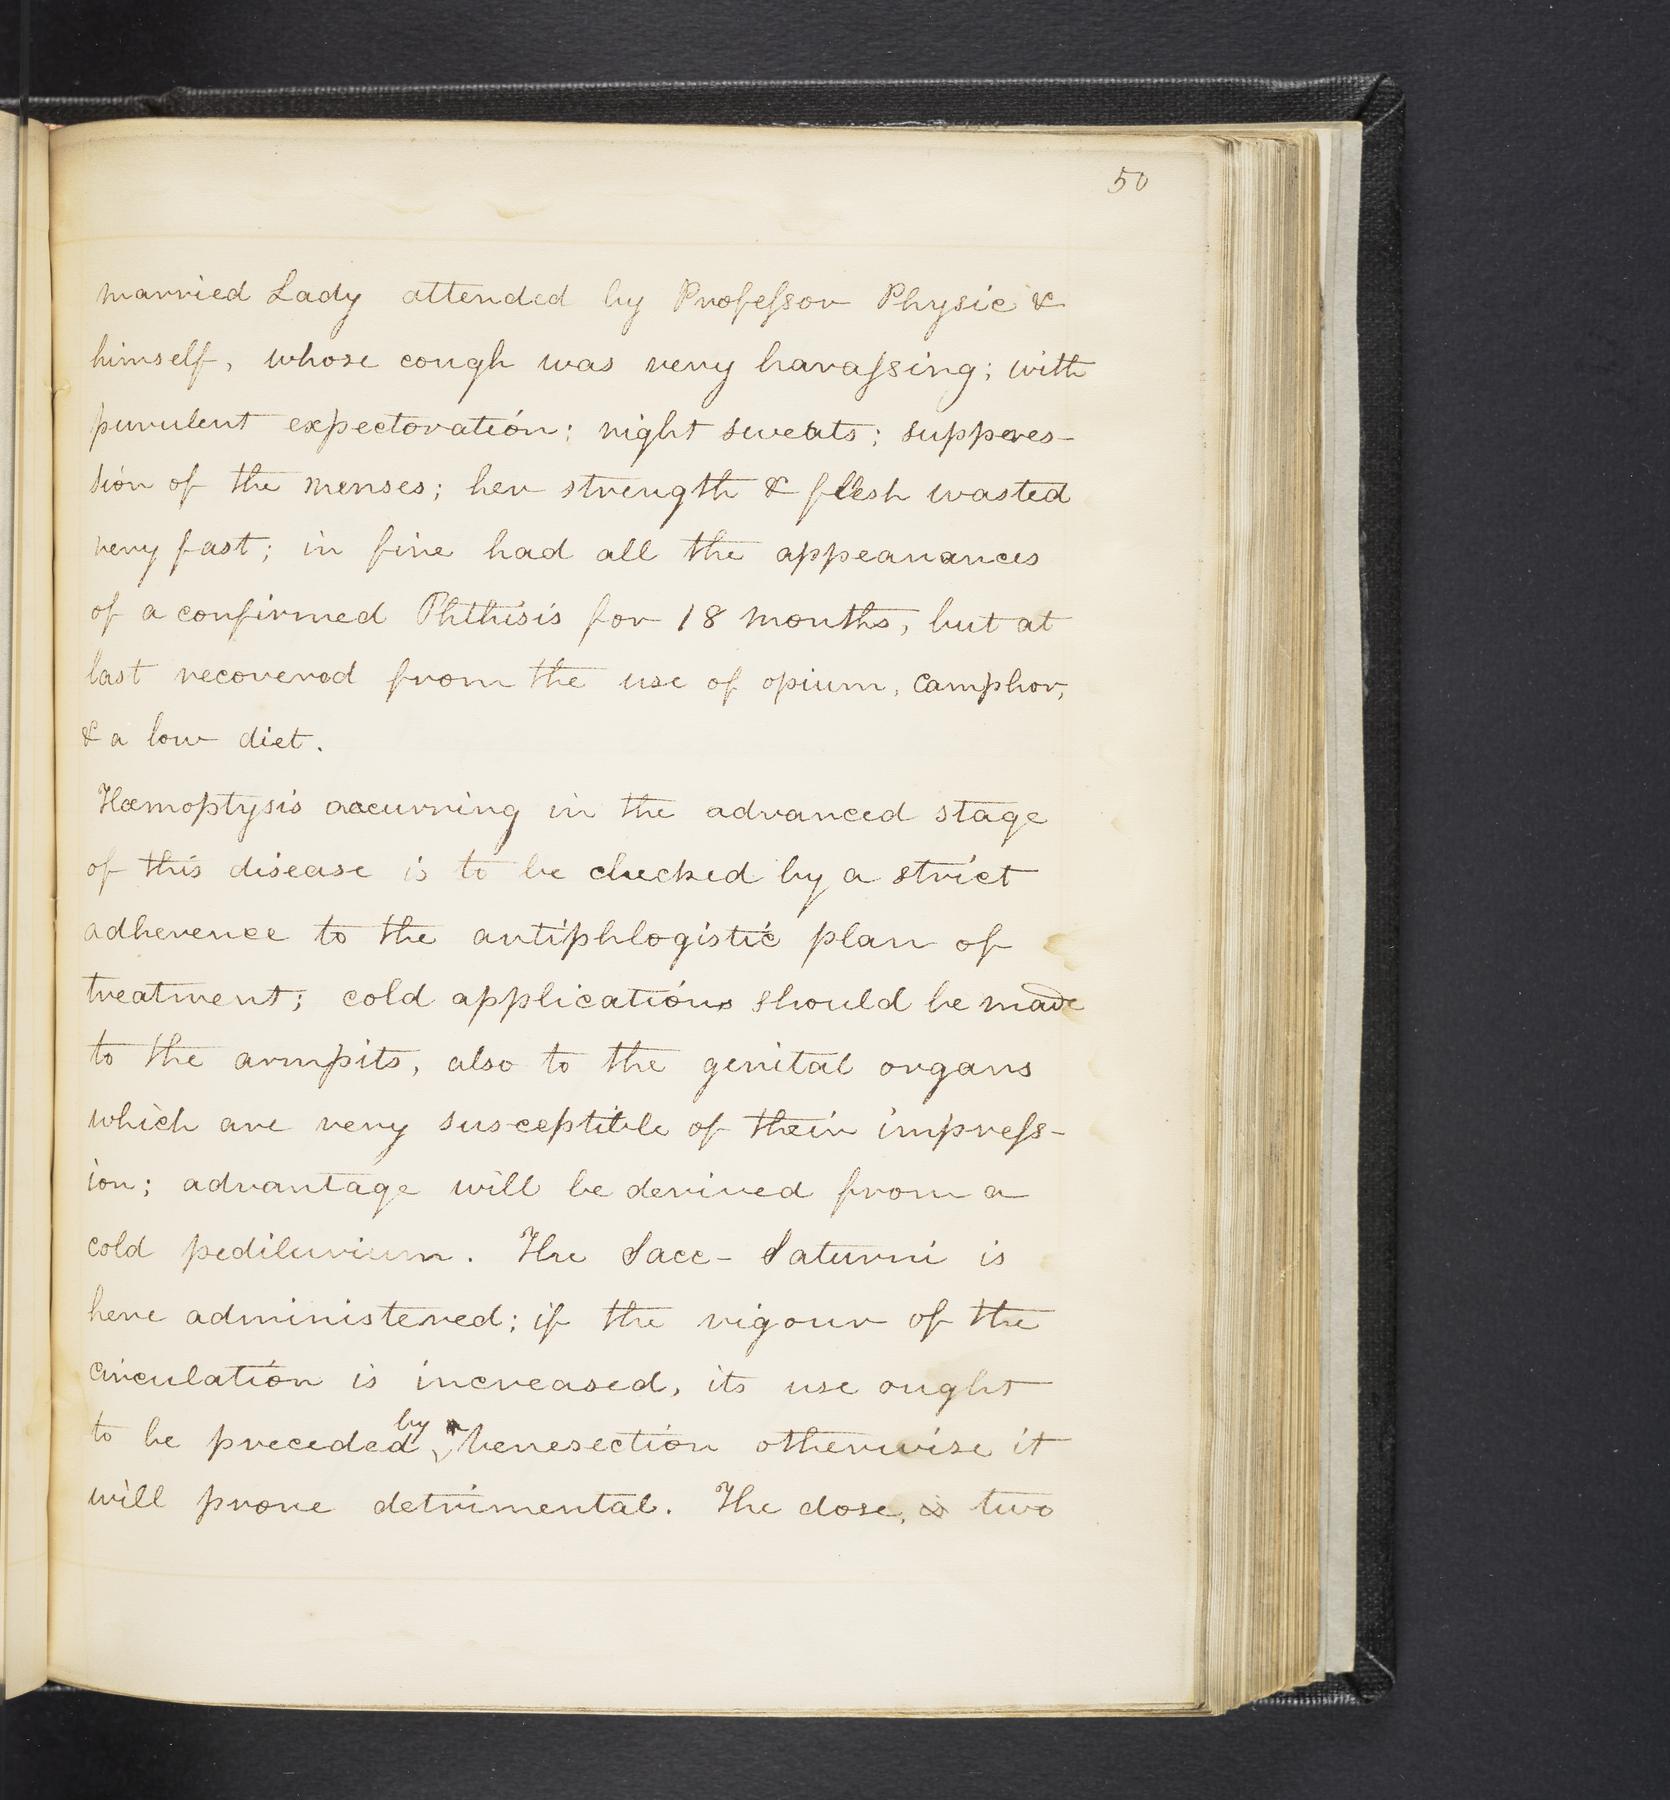 50
married Lady attended by Professor Physic &
himself, whose cough was very harassing; with
purulent expectoration; night sweats; suppres-
sion of the menses; her strength & flesh wasted
very fast; in fine had all the appearances
of a confirmed Phthisis for 18 months, but at
last recovered from the use of opium, camphor,
& a low diet.
Hæmoptysis occurring in the advanced stage
of this disease is to be checked by a strict
adherence to the antiphlogistic plan of
treatment; cold applications should be made
to the armpits, also to the genital organs
which are very susceptible of their impress-
ion; advantage will be derived from a
cold pediluvium. The Sacc- Saturni is
here administered; if the vigour of the
circulation is increased, its use ought
to be preceded by venesection otherwise it
will prove detrimental. The dose, is two